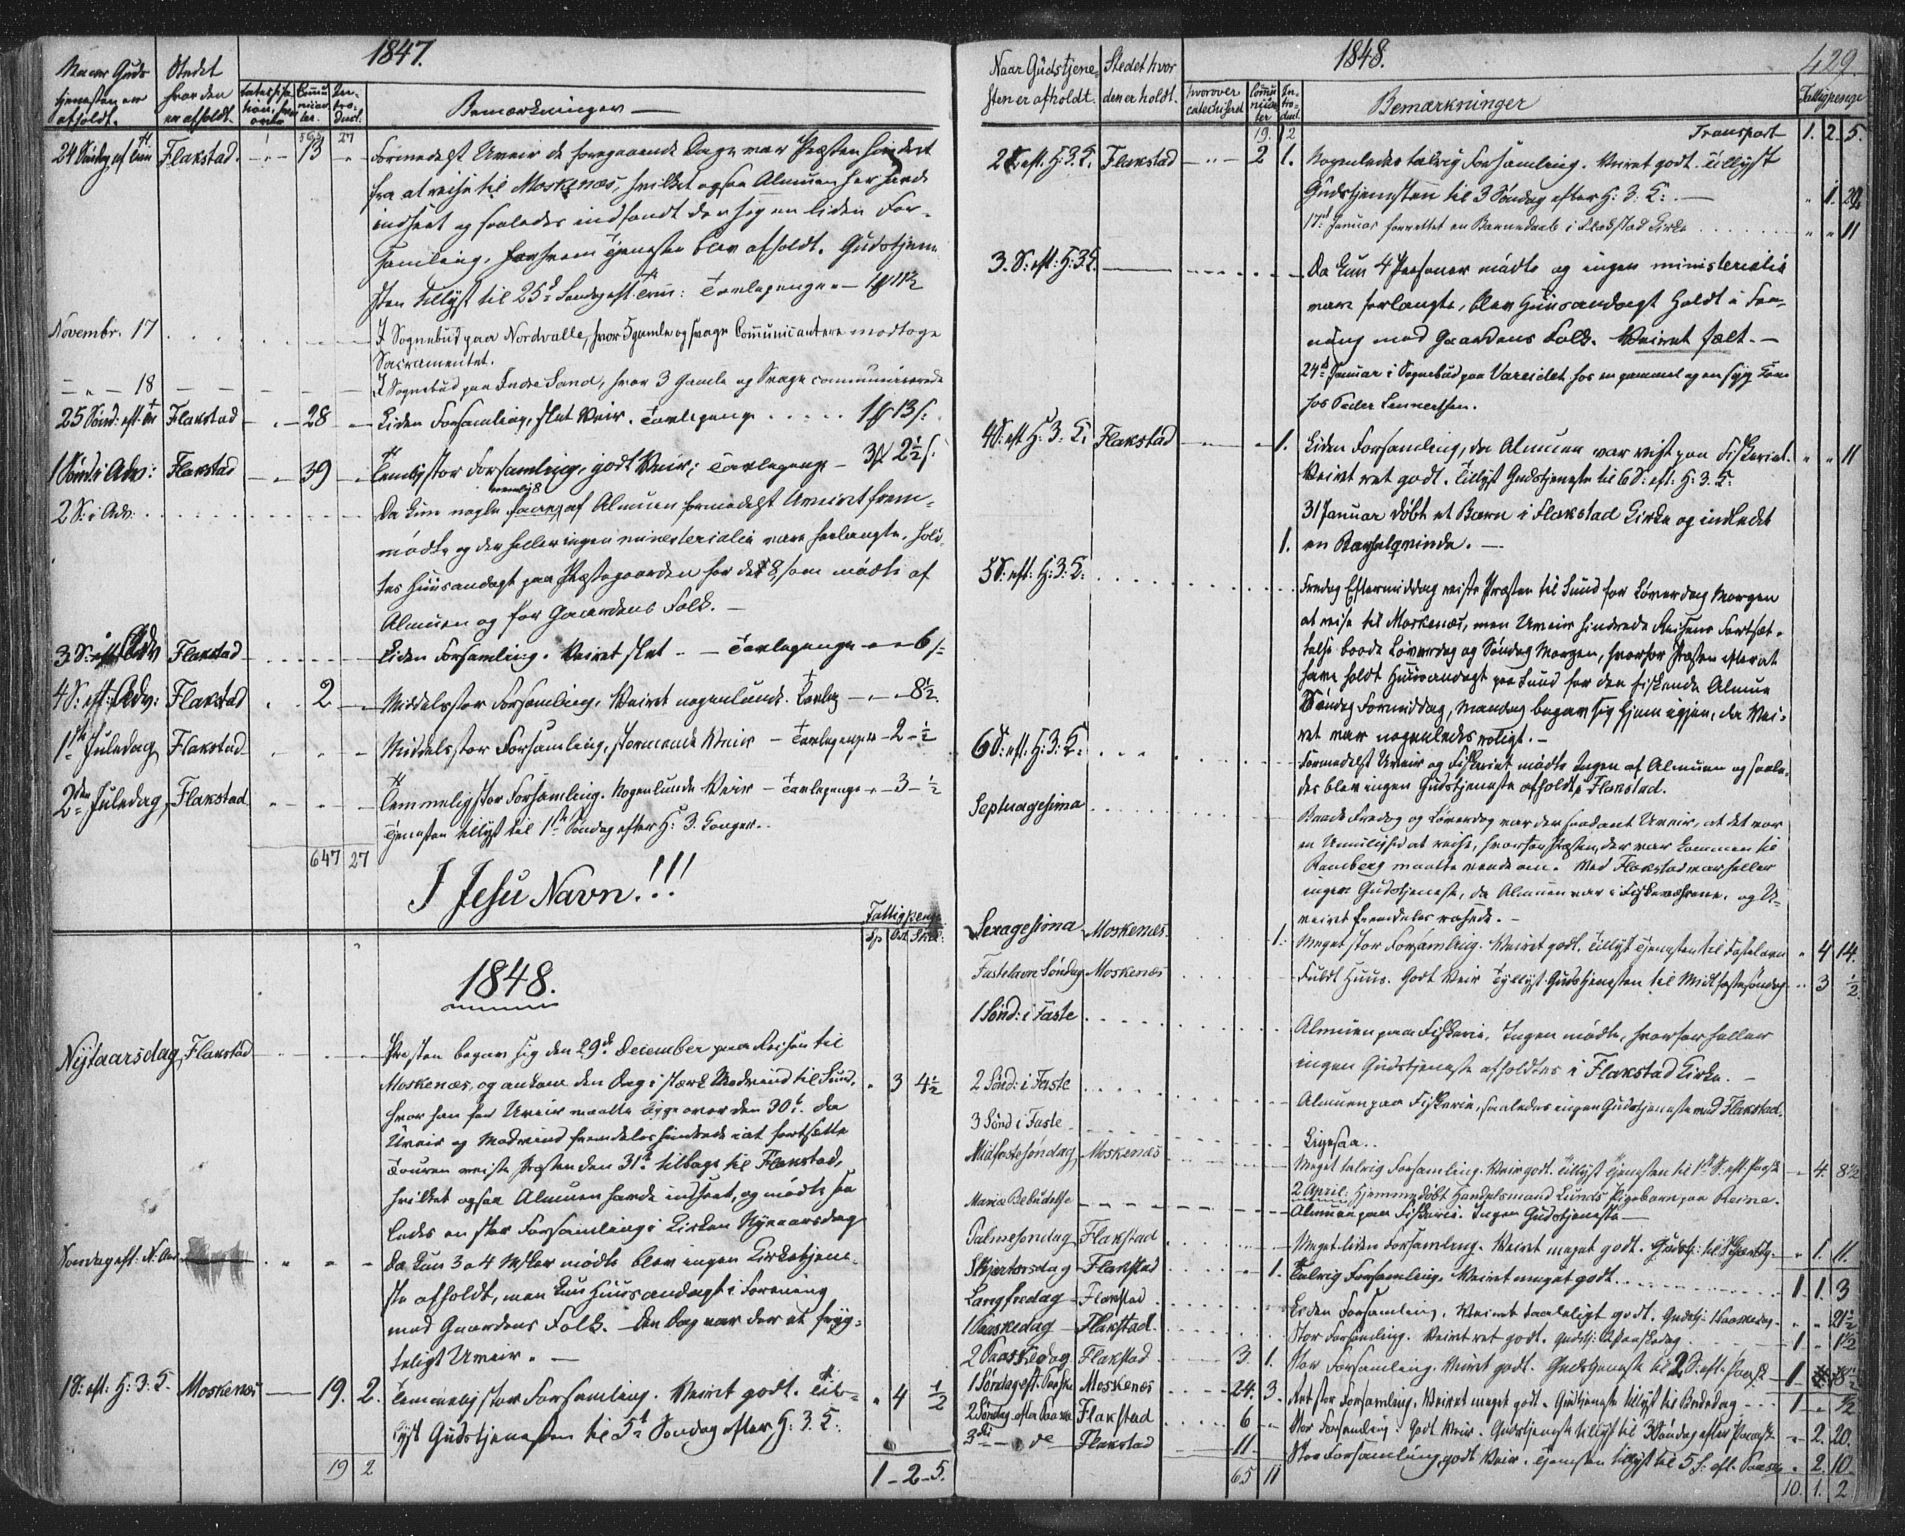 1847.
Naar Guds
tjenesten er
afholdt.
Stedet
hvor den
er afholdt.
Commu
nican
ter.
In-
tro-
duct.
Bemærkninger
24 Søndag ef. Trin Flakstad. 13
Formedelst Uveir de foregaaende Dage var Præsten hindret
fra at reise til Moskenæs, hvilket ogsaa Almuen her havde
indseet og saaledes indfandt der sig en liden For-
samling, hvorfor Tjeneste blev afholdt. Gudstjene-
sten tillyst til 25d Søndag eft: Trin: Tavlepenge
Novembr. 17
I Sognebud paa Nordvalle, hvor 5 gamle og svage Communicantere modtoge
Sacramentet.
— " — 18
I Sognebud paa Indre Sand, hvor 3 Gamle og Svage communicerede
25 Sønd: eft: Tr Flakstad 28 Liden Forsamling, slet Veir. Tavlepenge
1 Sønd: i Adv: Flakstad 39 Temlig stor Forsamling, godt Veir; Tavlepenge 2½
2 S: i Adv.
nemlig 8
Da kun nogle faa af Almuen formedelst Uveiret frem-
mødte og der heller ingen ministerialia vare forlangte, hold-
tes Huusandagt paa Præstegaarden for de 8 som mødte af
Almuen og for Gaardens Folk.
3 S: Adv Flakstad Liden Forsamling. Veiret slet — Tavlepenge 6
4 S: eft: Adv: Flakstad 2 Middelstor Forsamling, Veiret nogenlunde. Tavlep 8½
1ste Juledag Flakstad Middelstor Forsamling, stormende Veir — Tavlepenge 2-½
2den Juledag, Flakstad Temmelig stor Forsamling. Nogenlunde Veir — Tavlepenge 3-½
Tjenesten tillyst til 1ste Søndag efter H: 3. Konger.
647 27
I Jesu Navn!!!
Fattigpenge
Sp Ort Skill.
1848.
Nÿtaarsdag Flakstad Præsten begav sig den 29de December paa Reisen til
Moskenæs, og ankom den Dag i stærk Modvind til Sund, " 3 4½
hvor han for Uveir maatte ligge over den 30te. Da
Uveir og Modvind fremdeles hindrede i at fortsætte
Touren reiste Præsten den 31te tilbage til Flakstad,
hvilket ogsaa Almuen havde indseet, og mødte saa
ledes en stor Forsamling i Kirken Nytaarsdag
Søndag eft: N. Aar Da kun 3 a 4 Msker mødte blev ingen Kirketjene-
ste afholdt, men kun Huusandagt i Forening
med Gaardens Folk. Den Dag var der et fryg-
teligt Uveir. —
1 S: eft: H: 3. K Moskenæs 19. 2. Temmelig stor Forsamling. Veiret godt. Til-
lyst Gudstjenesten til 5te Søndag efter H: 3. K. " 4 ½
19 2 1-2-5.
1848.
429.
Naar Gudstjene-
sten er afholdt.
Stedet hvor
den er holdt.
hvorover
catechiseret
Commu
nican
ter
In-
tro-
duct.
Bemærkninger
Fattigpenge
19. 2 Transport 1. 2. 5.
2 S. eft. H: 3. K. Flakstad 2 1. Nogenledes talrig Forsamling. Veiret godt. Tillyst
Gudstjenesten til 3 Søndag efter H: 3. K:
17d Januar forrettet en Barnedaab i Flakstad Kirke 11
3. S: eft: H: 3 K. Da kun 4 Personer mødte og ingen ministerialia
vare forlangte, blev Huusandagt holdt i For-
ening med Gaardens Folk. Veiret fælt. —
24de Januar i Sognebud paa Vareidet hos en gammel og en syg Kone
hos Peder Lennertsen.
4 S: eft H: 3. K: Flakstad 1. Liden Forsamling, da Almuen var reist paa Fiskeriet. " " 11
Veiret ret godt. Tillyst Gudstjeneste til 6 S: eft: H: 3. K.
31 Januar døbt et Barn i Flakstad Kirke og indledet
1. en Barselqvinde. —
5 S: eft: H: 3: K: Fredag Eftermiddag reiste Præsten til Sund for Løverdag Morgen
at reise til Moskenæs, men Uveir hindrede Reisens Fortsæt-
telse baade Løverdag og Søndag Morgen, hvorfor Præsten efter at
have holdt Huusandagt paa Sund for den fiskende Almue
Søndag Formiddag, Mandag begav sig hjem igjen, da Vei-
ret var nogenledes roligt. —
6 S: eft: H: 3: K: Formedelst Uveir og Fiskeriet mødte Ingen af Almuen og saale-
des blev ingen Gudstjeneste afholdt i Flakstad.
Septuagesima Baade Fredag og Løverdag var der saadant Uveir, at det var
en Umulighed at reise, hvorfor Præsten, der var kommen til
Ramberg maatte vende om. Ved Flakstad var heller
ingen Gudstjeneste, da Almuen var i Fiskeværene, og U-
veiret fremdeles rasede. —
Sexagesima Moskenæs. 1. Meget stor Forsamling. Veiret godt. Tillyst Tjenesten til Fastelavn " 4 14.
Fastelavns Søndag Moskenæs Fuldt Huus. Godt Veir Tillyst Gudstjenesten til Midfastesøndag " 3 ½
1 Sønd: i Faste Almuen paa Fiskerie, Ingen mødte, hvorfor heller
ingen Gudstjeneste afholdtes i Flakstad Kirke. —
2 Sønd: i Faste Almuen paa Fiskerie, saaledes ingen Gudstjeneste ved Flakstad.
3 Sønd i Faste Ligesaa.
Midfastesøndag Moskenæs Meget talrig Forsamling. Veir godt. Tillyst Tjenesten til 1ste S: eft: Paaske " 4. 8½
2 April: Hjemmedøbt Handelsmand Lunds Pigebarn paa Reine.
Mariæ Bebudelse Almuen paa Fiskerie. Ingen Gudstjeneste —
Palmesøndag Flakstad Meget liden Forsamling. Veiret meget godt. " 1. 11.
Skjertorsdag Flakstad 1. Talrig Forsamling. Veiret meget godt. 1 1. 3
Langfredag Flakstad Liden Forsamling. Veiret taaleligt godt.
1 Paaskedag Flakstad. Stor Forsamling. Veiret ret godt. 1 " 1½
2 Paaskedag Flakstad 3. 1. Stor Forsamling Veiret godt. Gudstjeneste til 2 S: eft: Paaske
1 Søndag eft: Paaske Moskenæs 24. 3. Ret stor Forsamling. Veiret meget godt. Gudstjeneste tillyst til Bededag
2 Søndag efter Paaske Flakstad 6 Stor Forsamling. Godt Veir. Gudstjeneste tillyst til 3 Søndag efter Paaske " 2. 20.
3die — de — Flakstad 11 Stor Forsamling, godt Veir. Tjenesten tillyst til 5 S: eft. Paaske " 2. 10.
65 11 10. 1. 2